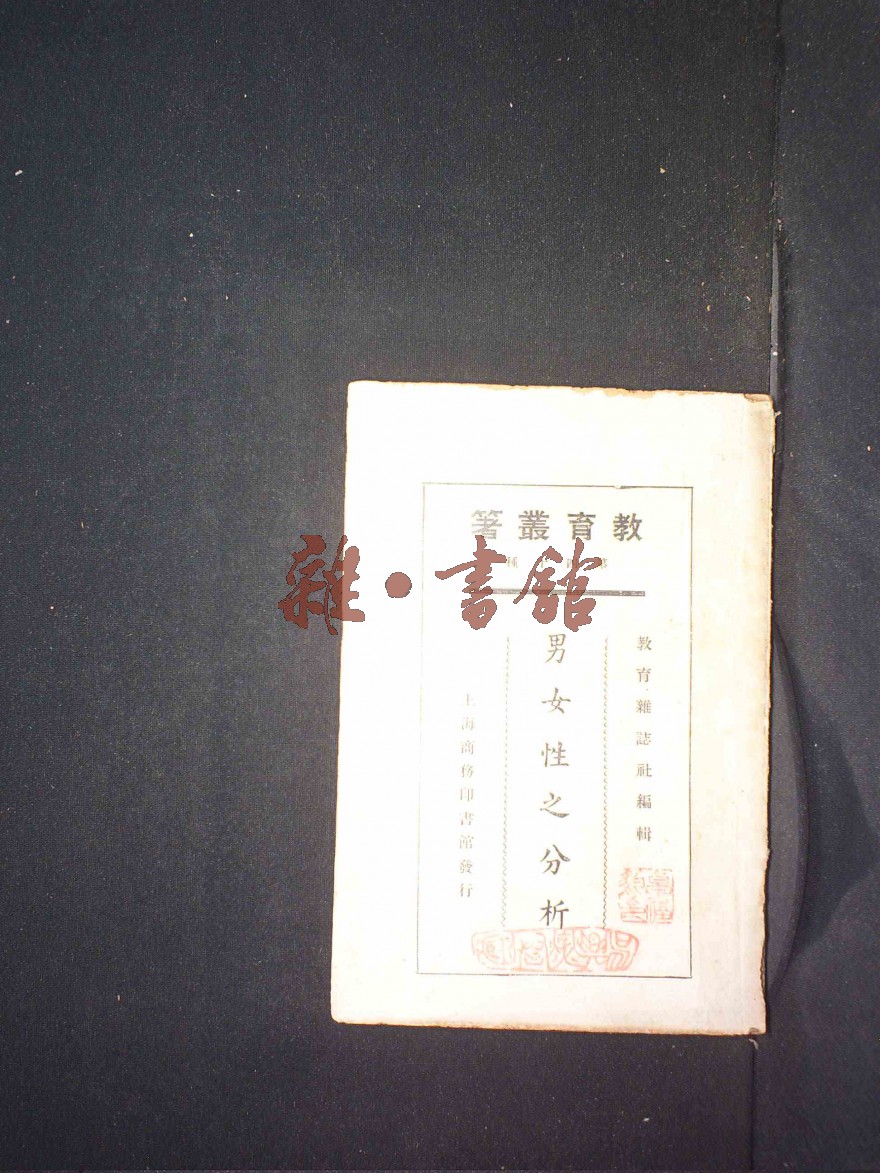 教育叢著
教育雜誌社編輯
男女性之分析
上海商務印書館發行
雜·書館